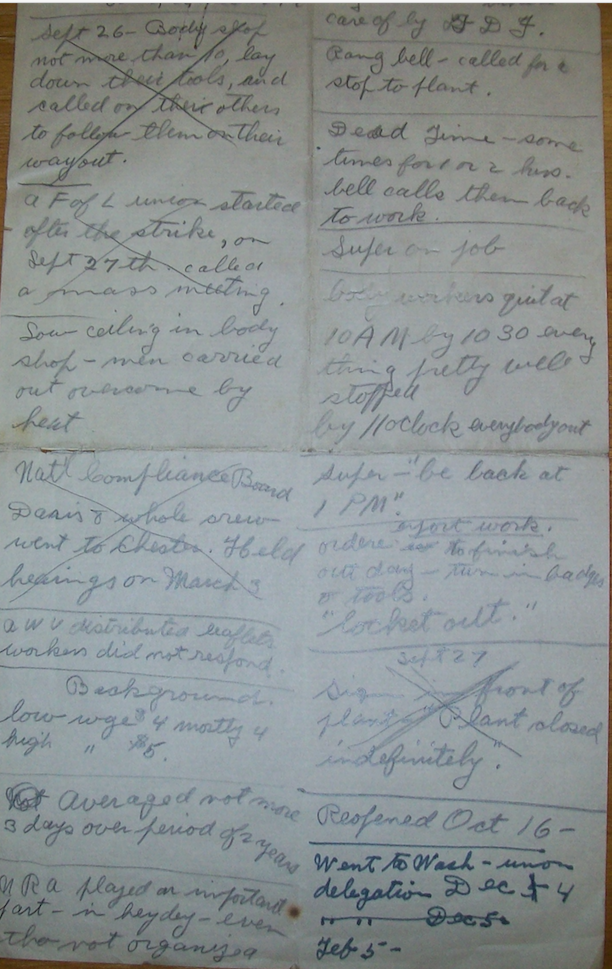 Sept 26 - Body shop
not more than 10, lay
down their tools, and
called on their others
to follow them on their
way out.
a F of L union started
after the strike, on
Sept 27th. called
a mass meeting.
Low ceiling in body
shop - men carried
out overcome by
heat
Nat'l Compliance Board
Davis & whole crew
went to Chester. Held
hearings on March 3
a W U distributed leaflets
workers did not respond.
Background.
low wge $4 mostly 4
high " $5.
Averaged not more
3 days over period of 2 years
N R A played an important
part - in heydey - even
tho not organized
care of by
Rang bell - called for a
stop to plant.
Dead Time - some
times for 1 or 2 hrs.
bell calls them back
to work.
Super on job
body workers quit at
10 AM by 10 30 every
thing pretty well
stopped
by 11 oclock everybody out
Super - "be back at
1 PM".
export work.
to finish
out day - turn in badges
& tools.
"locket out."
Sept 27
Sign in front of
plant - "Plant closed
indefinitely".
Reopened Oct 16 -
Went to Wash - union
delegation Dec 4
" " Dec 5
Feb 5 -